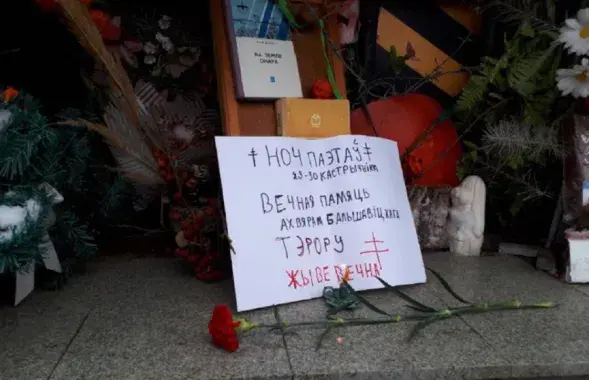 НОЧ ПАЭТАЎ
29-30 КАСТРЫЧНІКА
ВЕЧНАЯ ПАМЯЦЬ
АХВЯРАМ БАЛЬШАВІЦКАГА
ТЭРОРУ
ЖЫВЕ ВЕЧНА